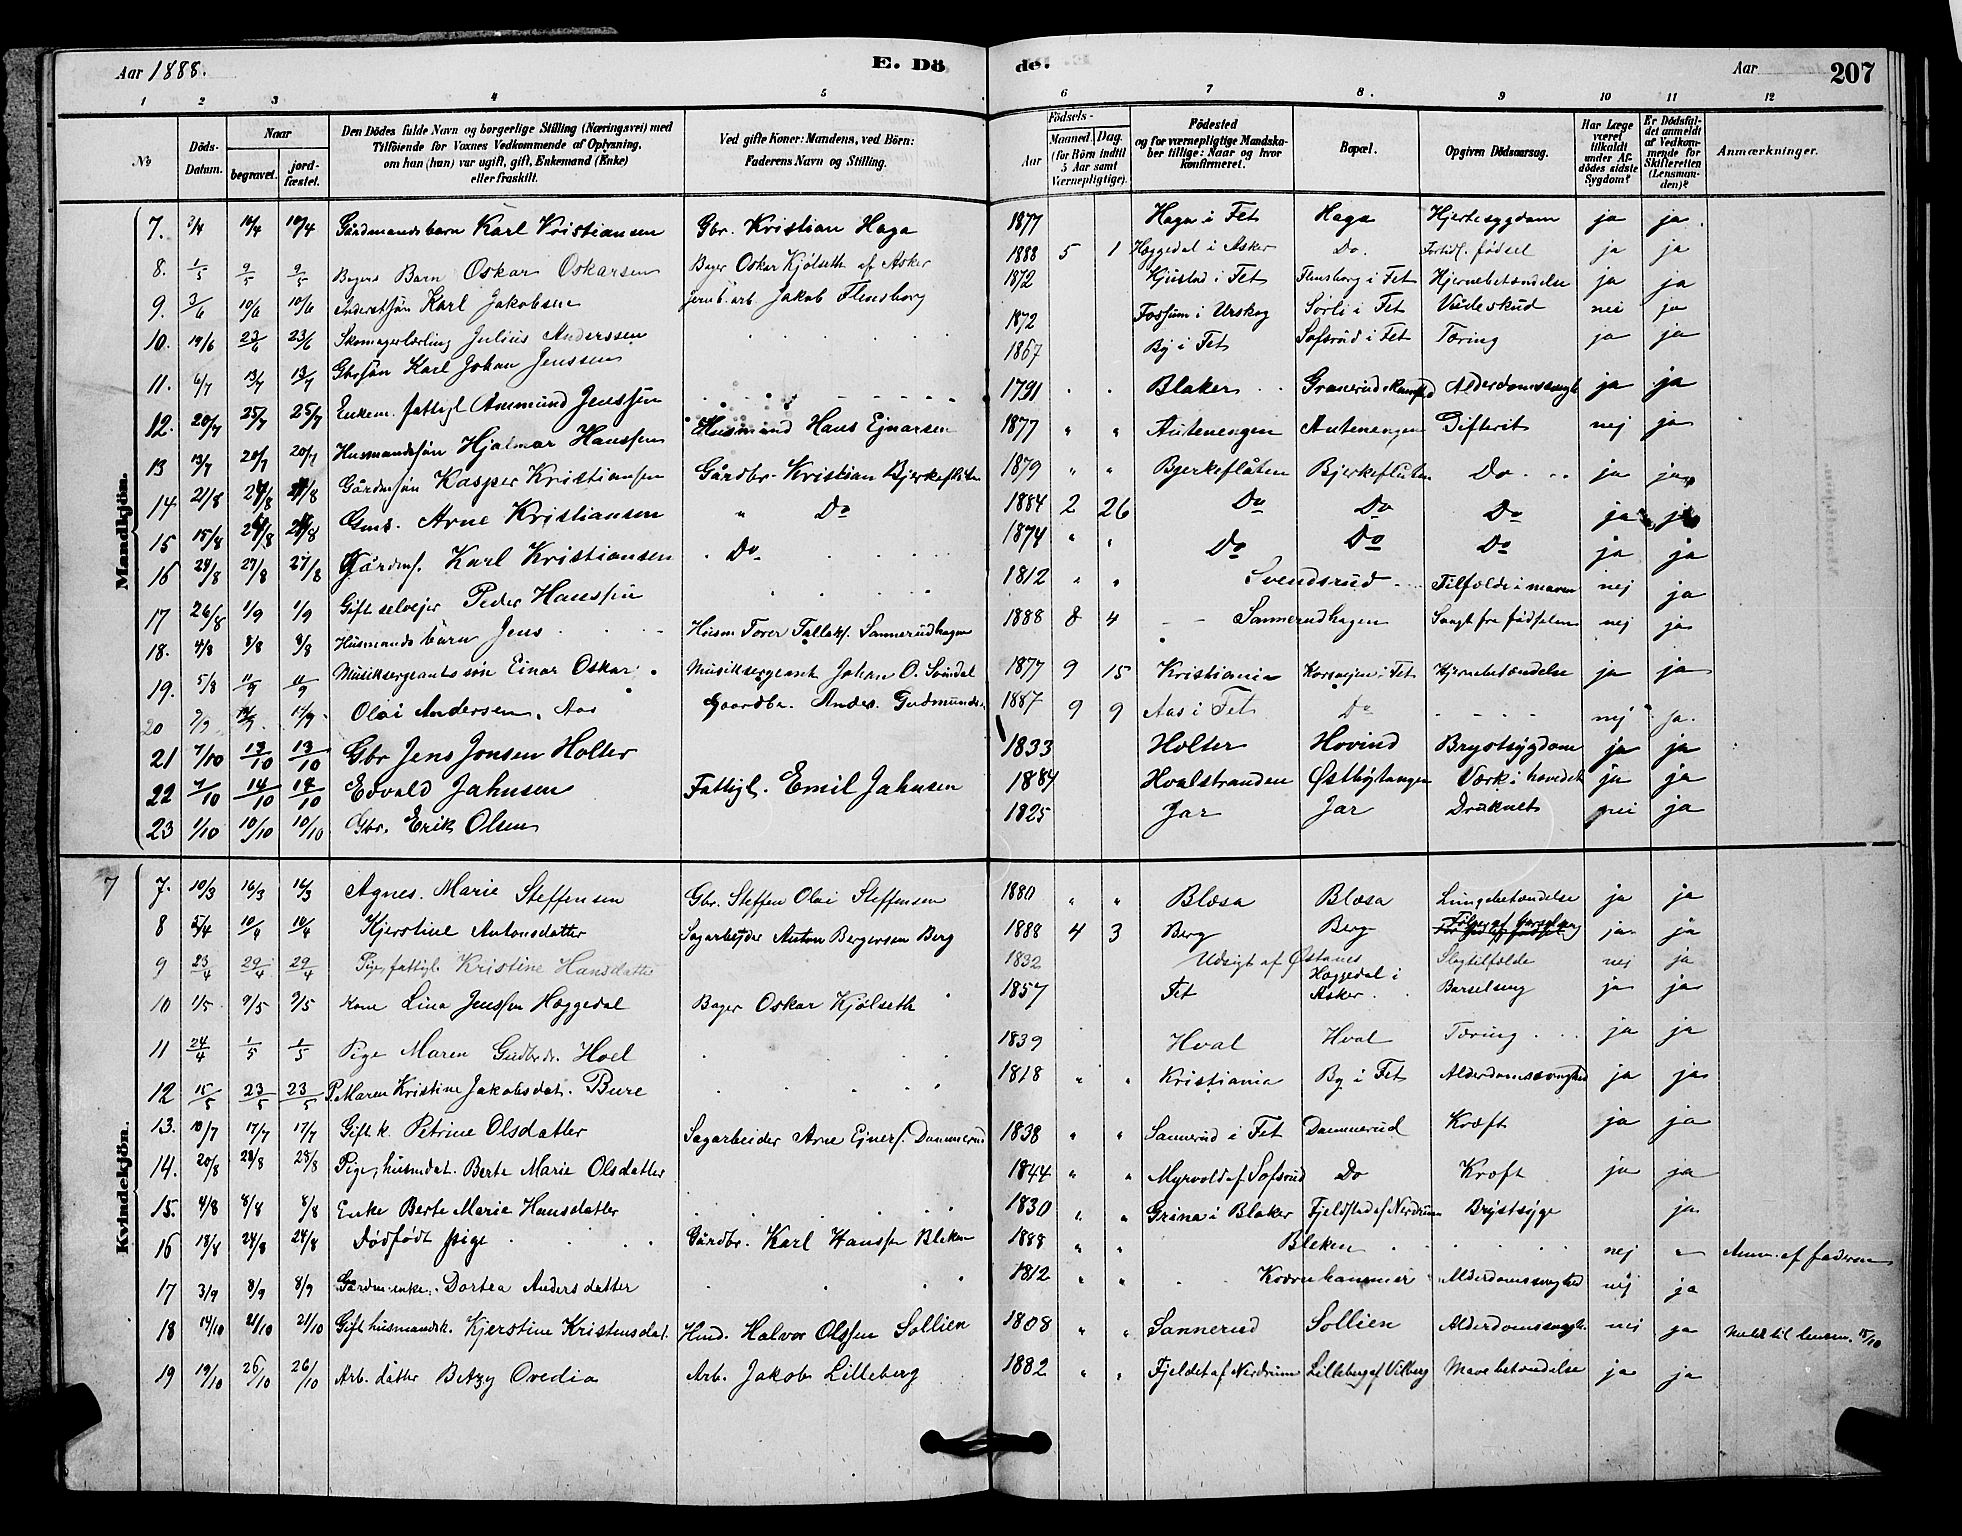 Aar 1888. E. Dö
de. Aar 207
1 2 3 4 5 6 7 8. 9 10 11 12
No
Döds-Datum.
Naar
begravet.
jord-fæstet.
Den Dödes fulde Navn og borgerlige Stilling (Næringsvei) med
Tilföiende for Voxnes Vedkommende af Oplysning,
om han (hun) var ugift, gift, Enkemand (Enke)
eller fraskilt.
Ved gifte Koner: Mandens, ved Börn:
Faderens Navn og Stilling.
Födsels-
Aar
Maaned. Dag.
(for Börn indtil
5 Aar samt
Værnepligtige).
Födested
og for værnepligtige Mandskaber tillige: Naar og hvor
konfirmeret.
Bopæl.
Opgiven Dödsaarsag.
Har Læge været tilkaldt under Afdödes sidste Sygdom?
Er Dödsfaldet anmeldt af Vedkommende for Skifteretten (Lensmanden)?
Anmærkninger.
Mandkjön.
7. 3/4 10/4 10/4 Gårdmandsbarn Karl Kristiansen Gbr. Kristian Haga 1877 Haga i Fet Haga Hjertesygdom ja ja
8. 1/5 9/5 9/5 Bagers Barn Oskar Oskarsen Bager Oskar Kjölseth af Asker 1888 5 1 Hæggedal i Asker Do. Fortidl. födsel ja ja
9. 3/6 10/6 10/6 Inderstsön Karl Jakobsen Jernb. arb. Jakob Flensborg 1872 Hjustad i Fet Flensborg i Fet Hjernebetændelse ja ja
10. 19/6 23/6 23/6 Skomagerlærling Julius Anderssen 1872 Fossum i Urskog Sörli i Fet Vådeskud nei ja
11. 6/7 13/7 13/7 Gbrsön Karl Johan Jenssen 1867 By i Fet Sofsrud i Fet Tæring ja ja
12. 20/7 25/7 25/7 Enkem. fattigl Ammund Jenssen 1791 Blaker Granerud Alderdomssvagh ja ja
13 13/7 20/7 20/7 Husmandssön Hjalmar Hanssen Husmand Hans Ejnarsen 1877 " " Autenengen Autenengen Difterit nej ja
14 21/8 27/8 27/8 Gårdmsön Kasper Kristiansen Gårdbr. Kristian Bjerkeflåten 1879 " " Bjerkeflåten Bjerkeflåten Do ja ja
15 15/8 27/8 27/8 Gms. Arne Kristiansen " Do 1884 2 26 Do Do Do ja ja
16 24/8 27/8 27/8 Gårdms. Karl Kristiansen Do 1874 " " Do Do Do ja ja
17 26/8 1/9 1/9 Gift selvejer Peder Hanssen 1812 " " Svendsrud Tilfælde i maven nej ja
18. 4/8 8/8 8/8 Husmandsbarn Jens Husm Torer Tollefs. Sannerudhagen 1888 8 4 Sannerudhagen Svagt fra födselen nej ja
19. 5/8 11/9 11/9 Musiksergeantssön Einar Oskar Musiksergeant Johan O. Söndal 1877 9 15 Kristiania Korsvejen i Fet Hjernebetændelse ja ja
20 9/9 14/9 14/9 Olai Andersen, Aas Gaardbr. Anders Gudmunds. 1887 9 9 Aas i Fet Do nej ja.
21 7/10 13/10 13/10 Gbr Jens Jonsen Holter 1833 Holter Hovind Brystsygdom ja ja
22 7/10 14/10 14/10 Edvald Jahnsen Fattigl. Emil Jahnsen 1884 Hvalstranden Østbytangen Værk i hovedet ja ja
23 1/10 10/10 10/10 Gbr. Erik Olsen 1825 Jar Jar Druknet nei ja
Kvindekjön.
7
7. 10/3 16/3 16/3 Agnes Marie Steffensen Gbr. Steffen Olai Steffensen 1880 " " Blæsa Blæsa Lungebetændelse ja ja
8 5/4 10/4 10/4 Kjerstine Antonsdatter Sagarbejder Anton Bergersen Berg 1888 4 3 Berg Berg ja ja
9 23/4 29/4 29/4 Pige, fattigl Kristine Hansdatter 1832 Udsigt af Østanes Slagtilfælde nej ja
10 1/5 9/5 9/5 Kone Lina Jenssen Hæggedal Bager Oskar Kjölseth 1857 Fet Hæggedal i Asker Barselseng ja ja
11 24/4 1/5 1/5 Pige Maren Gudbr.dr. Hoel 1839 Hval Hval Tæring ja ja
12 15/5 23/5 23/5 P. Maren Kristine Jakobsdat. Bure 1818 " " Kristiania By i Fet Alderdomssvaghed ja ja
13. 10/7 17/7 17/7 Gift k. Petrine Olsdatter Sagarbeider Arne Ejners. Dammerud 1838 " " Sannerud i Fet Dammerud Kræft ja ja
14. 20/8 28/8 28/8 Pige, husmdat. Berte Marie Olsdatter 1844 " " Myrvold af Sofsrud Do Kræft ja ja
15. 4/8 8/8 8/8 Enke Berte Marie Hansdatter 1830 " " Grina i Blaker Fjeldstad af Nerdrum Brystsyge ja
16 18/8 24/8 24/8 Dödfödt pige Gårdbr. Karl Hanssen Bleken 1888 " " Bleken nej Anm. af faderen
17 3/9 8/9 8/9 Gårdm. enke. Dortea Andersdatter 1812 " " Kværnhammer Alderdomssvaghed nej ja
18 14/10 21/10 21/10 Gift husmandsk. Kjerstine Kristensdat. Hmd. Halvor Olssen Sollien 1808 " " Sannerud Sollien Alderdomssvagh. nej ja Meldt til lensm. 15/10
19 19/10 26/10 26/10 Arb. datter Betzy Ovedia Arb. Jakob Lilleberg 1882 " " Fjeldet af Nerdrum Lilleberg af Vilberg Mavebetændelse ja ja